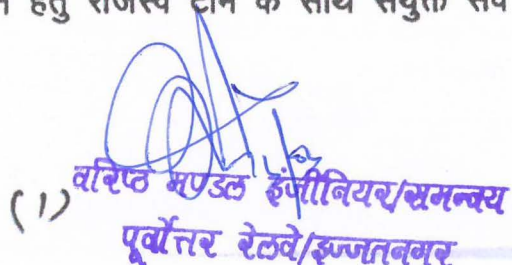 हेतु राजस्व टीम के साथ संयुक्त सर्व
वरिष्ठ मण्डल इंजीनियर/समन्वय
(1)
पूर्वोत्तर रेलवे/इज्जतनगर